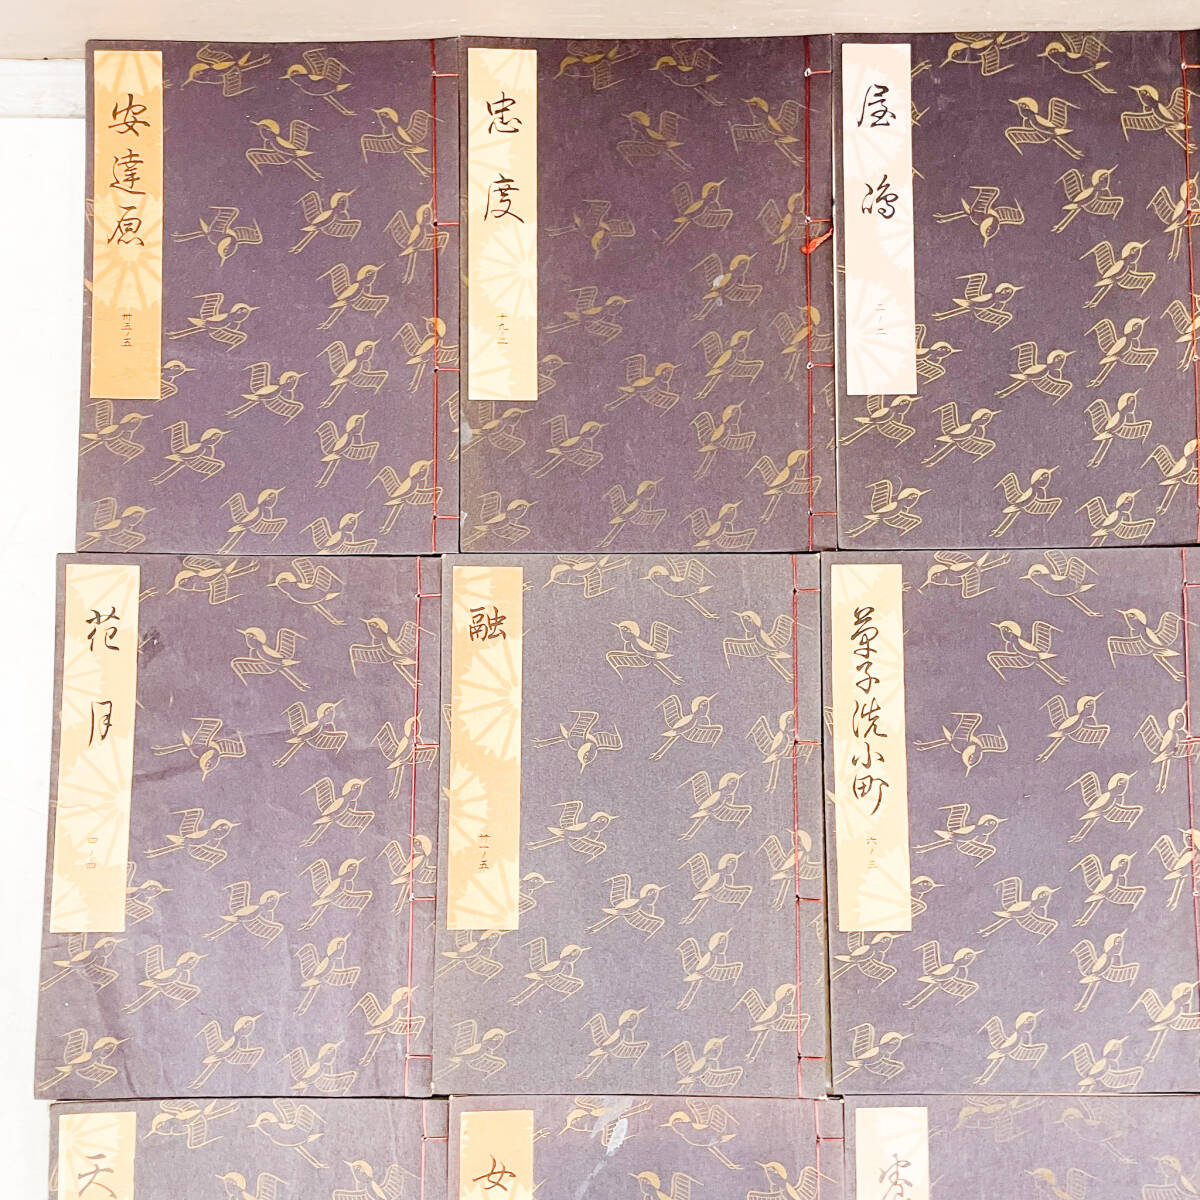 安達原
卅五ノ五
忠度
十九ノ二
屋嶋
二ノ二
花月
四ノ四
融
廿一ノ五
草子洗小町
六ノ三
天
女